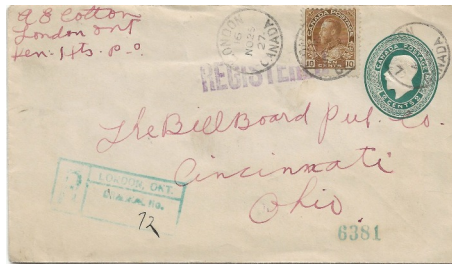 A E Cotton
London Ont
Gen. Hts. P.O.
LONDON
NO 2
27
CANADA
CANADA POSTAGE
10 CENTS 10
CANADA POSTAGE
TWO CENTS
REGISTERED
The Bill Board Pub. Co.
Cincinnati
Ohio.
LONDON, ONT.
No.
12
6381